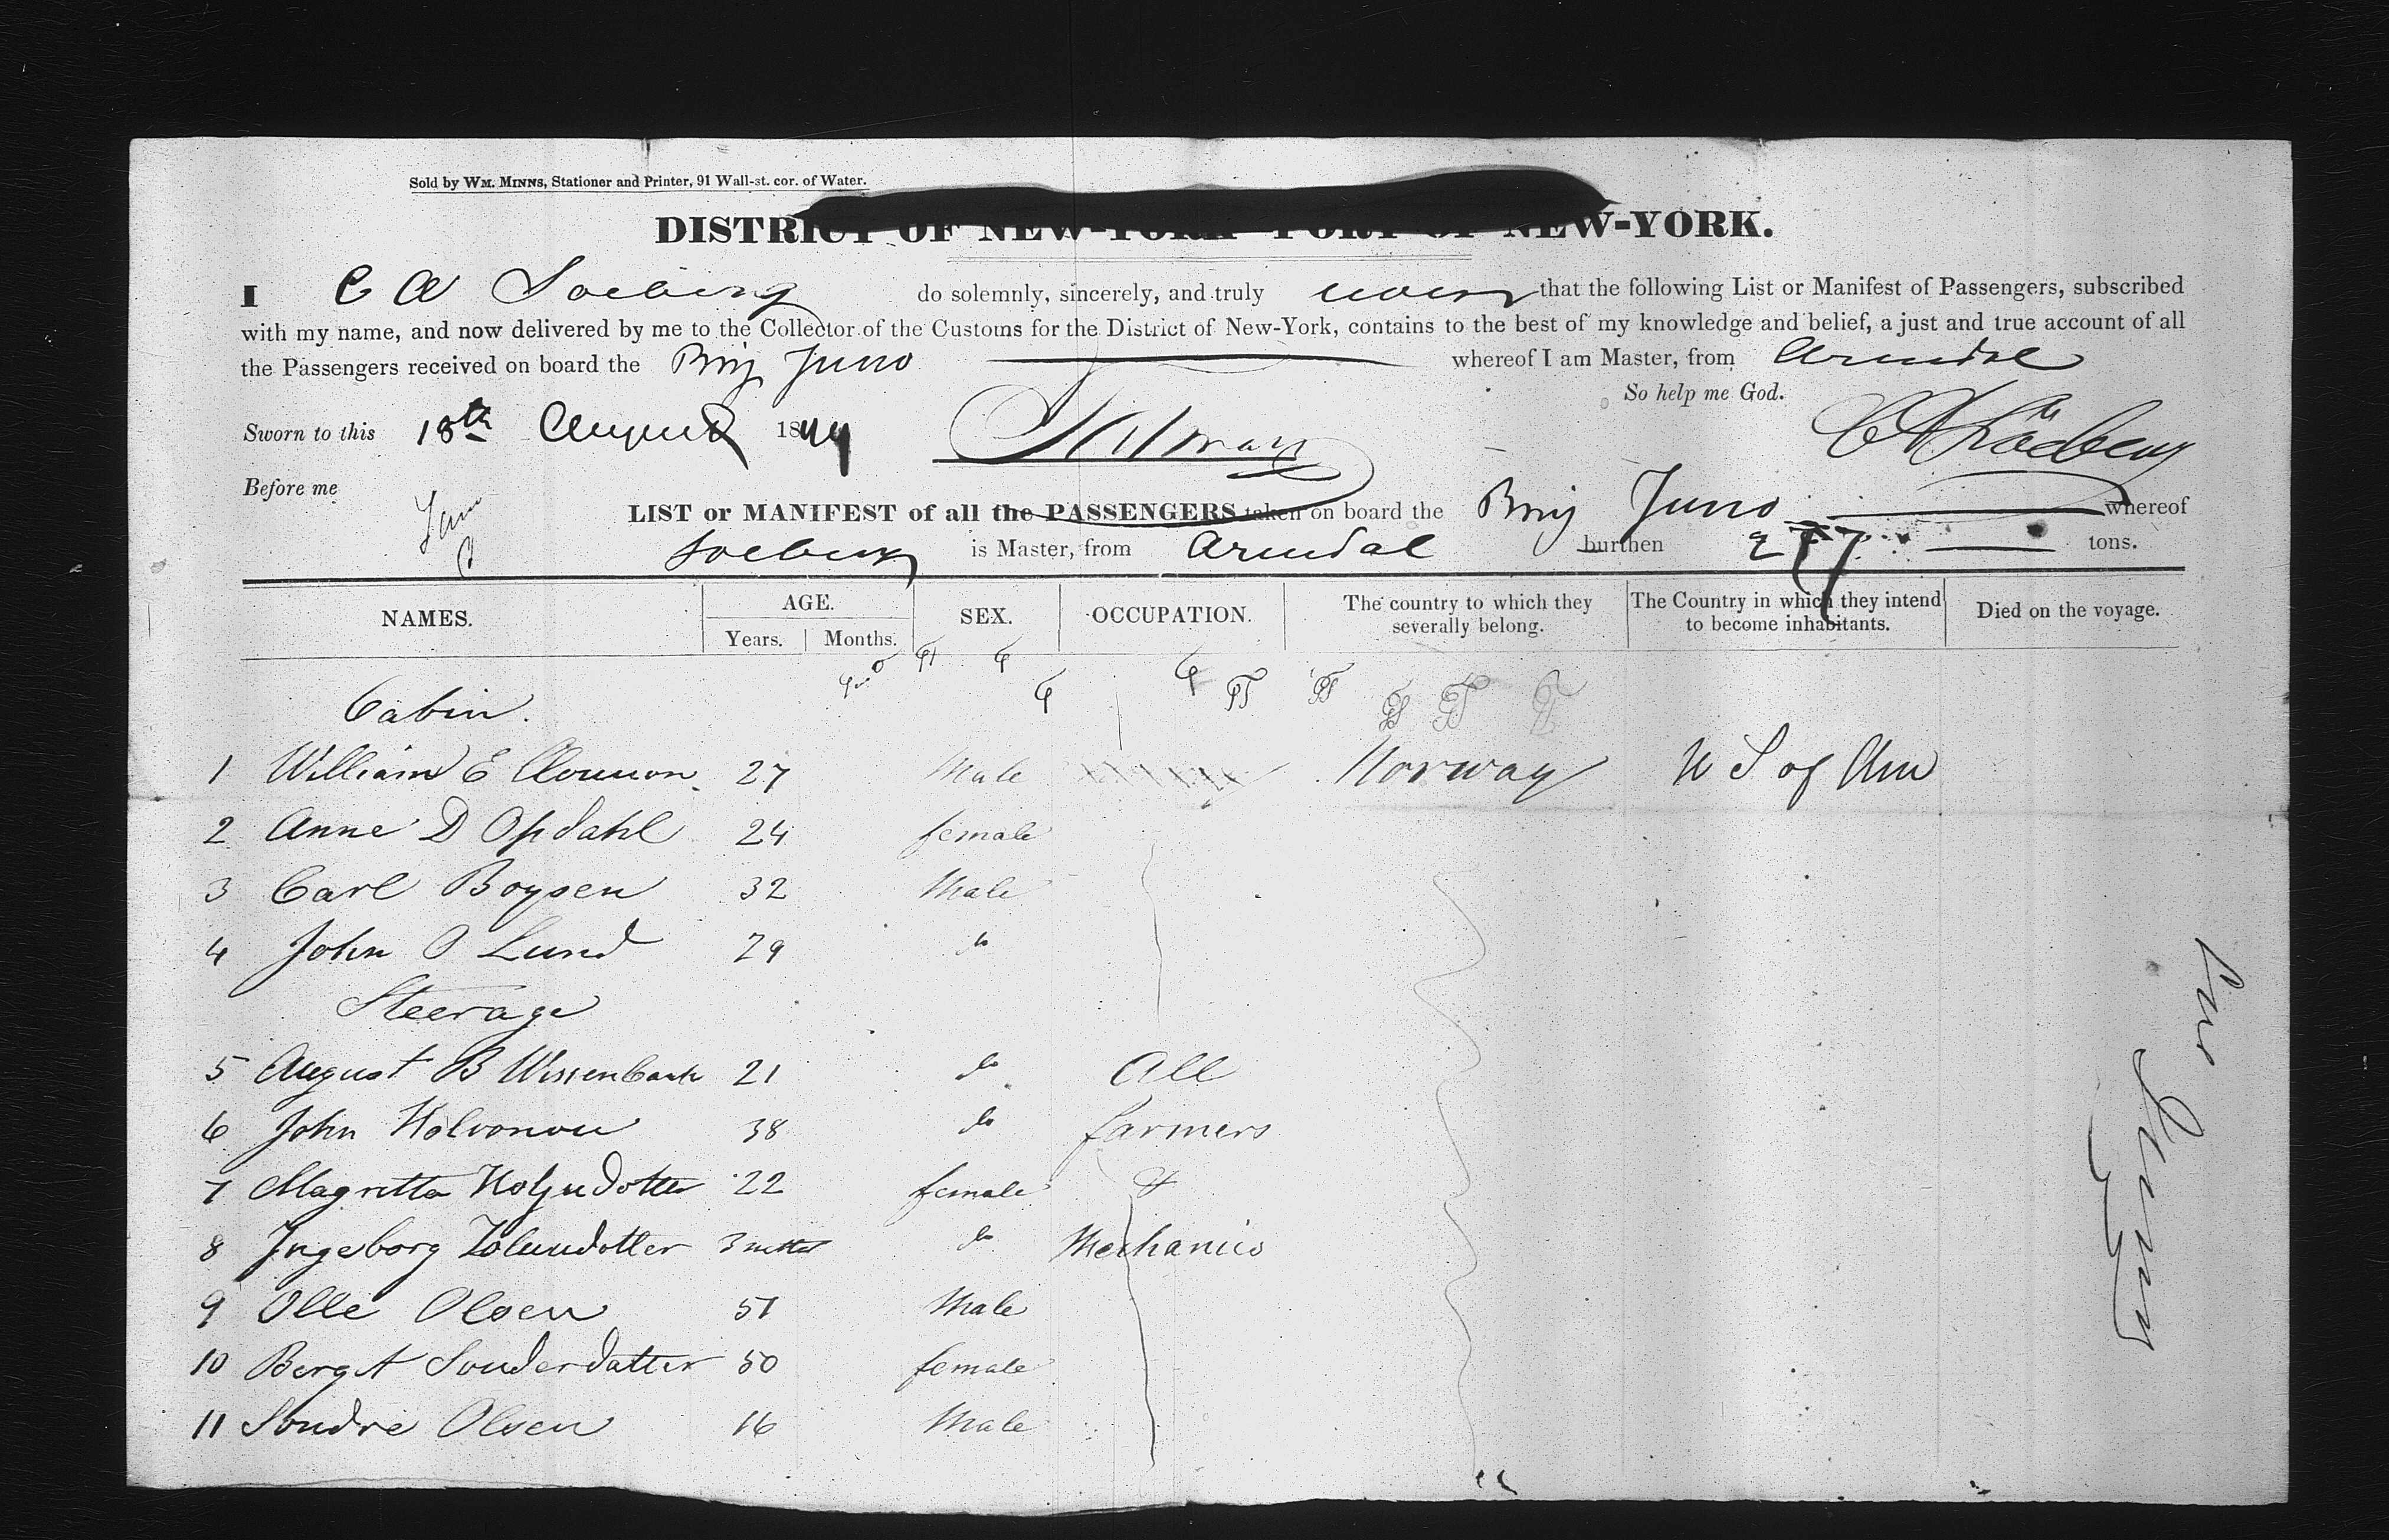 Sold by WM. MINNS, Stationer and Printer, 91 Wall-st. cor. of Water.
DISTRICT OF NEW-YORK PORT OF NEW-YORK.
I C A Soeberg do solemnly, sincerely, and truly that the following List or Manifest of Passengers, subscribed
with my name, and now delivered by me to the Collector of the Customs for the District of New-York, contains to the best of my knowledge and belief, a just and true account of all
the Passengers received on board the Brig Juno whereof I am Master, from Arendal
So help me God.
Sworn to this 18th August 1844
Before me
LIST or MANIFEST of all the PASSENGERS taken on board the Brig Juno whereof
Soeberg is Master, from Arendal burthen 277 tons.
NAMES. AGE. Years. Months. SEX. OCCUPATION. The country to which they severally belong. The Country in which they intend to become inhabitants. Died on the voyage.
Cabin.
1 William E 27 Male Norway U S of Am
2 Anne D Opdahl 24 female
3 Carl Boysen 32 Male
4 John O Lund 29 do
Steerage
5 August B 21 do All
6 John 38 do farmers
7 Magritta 22 female &
8 Ingeborg 3 do Mechanics
9 Olle Olsen 51 Male
10 Bergt Sonderdatter 50 female
11 Sondre Olsen 16 Male
Brig Juno